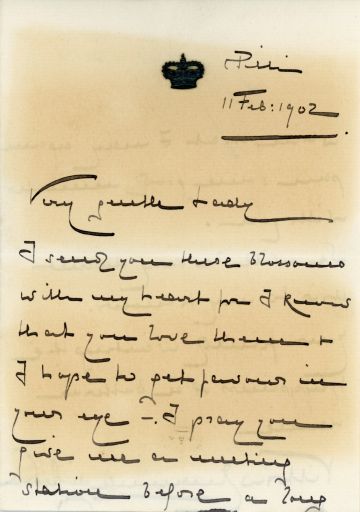 11 Feb: 1902
Very gentle Lady
I send you these blossoms
with my heart for I know
that you love them +
I hope to get favour in
your eye –. I pray you
give me a meeting
station before a long